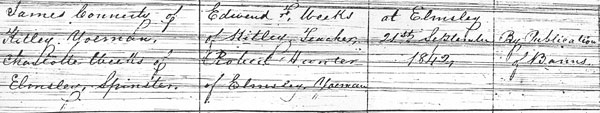 James Connerty of Edward F. Weeks at Elmsley
Kitley Yoeman, of Kitley, Teacher, 21st September By Publication
Charlotte Weeks of Robert Hunter 1842, of Banns.
Elmsley, Spinster. of Elmsley, Yoeman